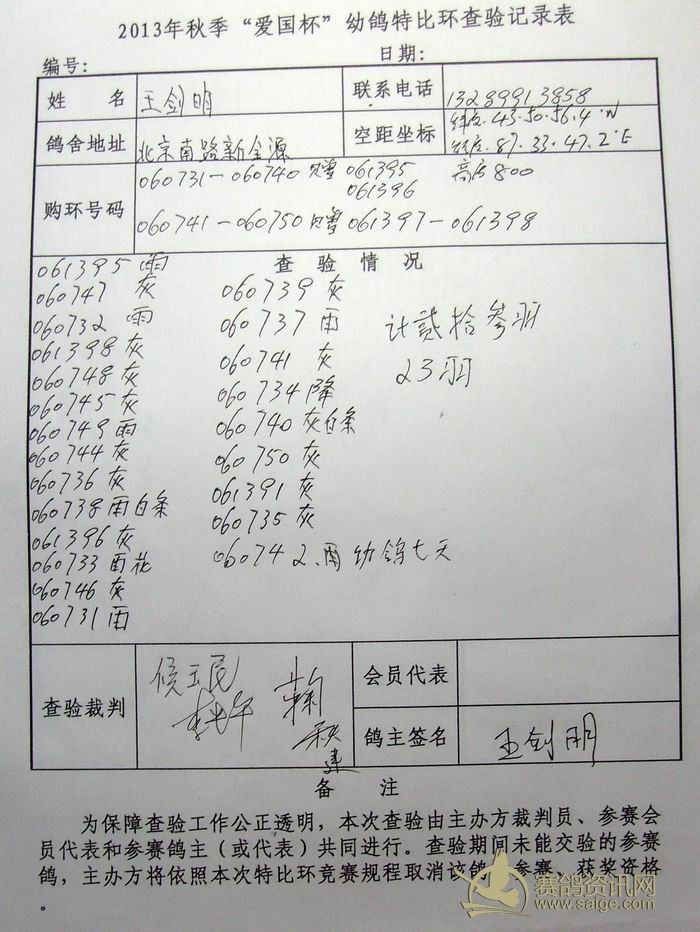 2013年秋季“爱国杯”幼鸽特比环查验记录表
编号： 日期：
姓 名 王剑明 联系电话 13289913858
鸽舍地址 北京南路新全源 空距坐标 纬度.43.50.56.4"N
经度.87.33.47.2"E
购环号码 060731-060740 061395 高度800
061396
060741-060750 061397-061398
查验情况
061395 雨
060747 灰 060739 灰
060732 雨 060737 雨 计贰拾叁羽
061398 灰
060748 灰 060741 灰 23羽
060745 灰 060734 降
060749 雨 060740 灰白条
060744 灰 060750 灰
060736 灰 061391 灰
060738 雨白条 060735 灰
061396 灰
060733 雨花 060742、雨 幼鸽七天
060746 灰
060731 雨
查验裁判 侯玉民 会员代表
鸽主签名 王剑明
备 注
为保障查验工作公正透明，本次查验由主办方裁判员、参赛会
员代表和参赛鸽主（或代表）共同进行。查验期间未能交验的参赛
鸽，主办方将依照本次特比环竞赛规程取消该鸽参赛、获奖资格
。
赛鸽资讯网
www.saige.com